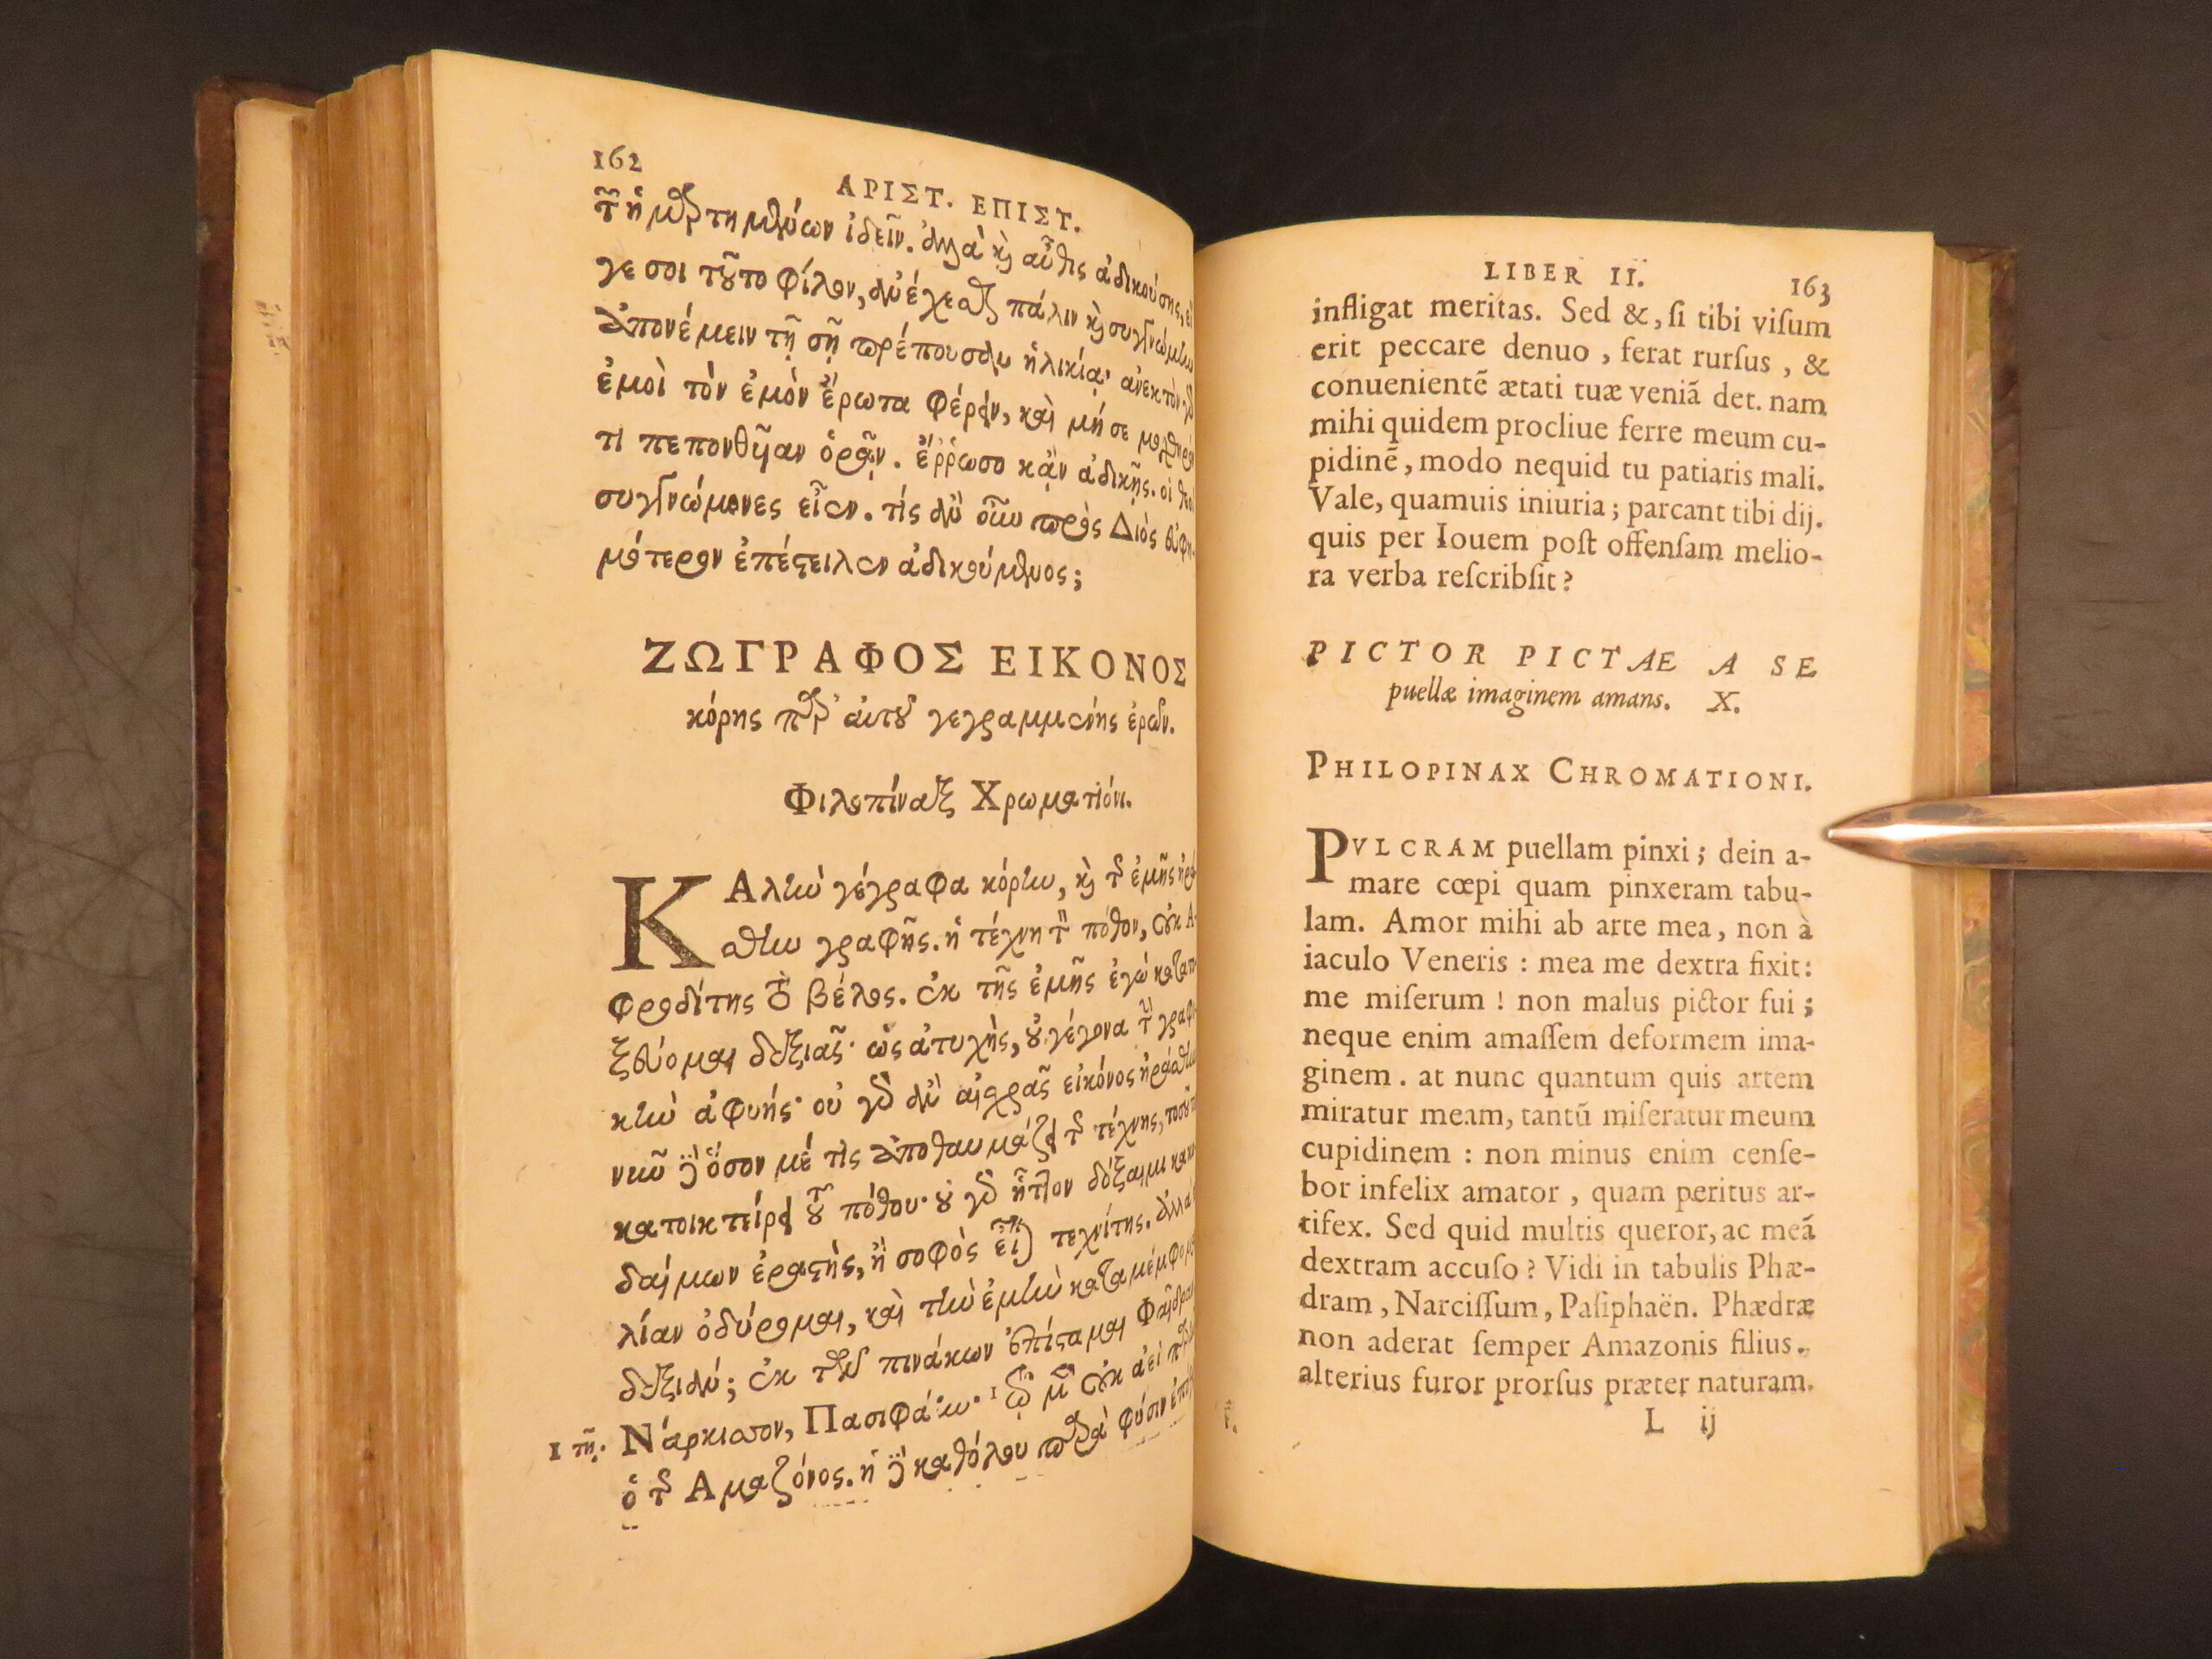 162
ΑΡΙΣΤ. ΕΠΙΣΤ.
τῶν ἡμαρτημένων ἰδεῖν. ἀλλὰ καὶ αὖθις ἀδικούσης, εἴ
γε σοι τοῦτο φίλον, ἀνέχεσθαι πάλιν καὶ συγγνώμην
ἀπονέμειν τῇ σῇ πρέπουσαν ἡλικίᾳ· ἀνεκτὸν γὸ
ἐμοὶ τὸν ἐμὸν ἔρωτα φέρειν, καὶ μή σε
τι πεπονθῆαν ὁρᾷν. ἔῤῥωσο κᾂν ἀδικῇς. οἱ θεοὶ
συγγνώμονες εἶεν. τίς ἂν οὕτω πρὸς Διὸς εὐφη-
μότερον ἐπέστειλεν ἀδικούμενος;
ΖΩΓΡΑΦΟΣ ΕΙΚΟΝΟΣ
κόρης παρ' αὐτοῦ γεγραμμένης ἐρῶν.
Φιλοπίναξ Χρωματίονι.
ΚΑλὴν γέγραφα κόρην, καὶ τῆς ἐμῆς ἠρά
σθην γραφῆς. ἡ τέχνη τὸν πόθον, οὐκ Α-
φροδίτης τὸ βέλος. ἐκ τῆς ἐμῆς ἐγὼ κατατο
ξεύομαι δεξιᾶς· ὡς ἀτυχὴς, οὐ γέγονα τὴν γραφι
κὴν ἀφυής· οὐ γὸ ἂν αἰσχρᾶς εἰκόνος ἠράσθην
νῦν δὲ ὅσον μέ τις ἀποθαυμάζει τῆς τέχνης, τοσοῦτον
κατοικτείρει τοῦ πόθου· οὐ γὸ ἧττον δόξαιμι κακο
δαίμων ἐραστὴς, ἢ σοφὸς εἶναι τεχνίτης. ἀλλὰ τί
λίαν ὀδύρομαι, καὶ τὴν ἐμὴν καταμέμφομαι
δεξιάν; ἐκ τῶν πινάκων ἐπίσταμαι Φαίδραν
1 τῇ. Νάρκισσον, Πασιφάην· 1 τῷ μὲν οὐκ ἀεὶ παρῆν
ὁ τῆς Αμαζόνος. ἡ δὲ καθόλου παρὰ φύσιν ἐπό
LIBER II. 163
infligat meritas. Sed &, ſi tibi viſum
erit peccare denuo, ferat rurſus, &
conuenientẽ ætati tuæ veniã det. nam
mihi quidem procliue ferre meum cu-
pidinẽ, modo nequid tu patiaris mali.
Vale, quamuis iniuria; parcant tibi dij.
quis per Iouem poſt offenſam melio-
ra verba reſcribſit?
PICTOR PICTAE A SE
puellæ imaginem amans. X.
PHILOPINAX CHROMATIONI.
PVLCRAM puellam pinxi; dein a-
mare cœpi quam pinxeram tabu-
lam. Amor mihi ab arte mea, non à
iaculo Veneris: mea me dextra fixit:
me miſerum! non malus pictor fui;
neque enim amaſſem deformem ima-
ginem. at nunc quantum quis artem
miratur meam, tantũ miſeratur meum
cupidinem: non minus enim cenſe-
bor infelix amator, quam peritus ar-
tifex. Sed quid multis queror, ac meã
dextram accuſo? Vidi in tabulis Phæ-
dram, Narciſſum, Paſiphaën. Phædræ
non aderat ſemper Amazonis filius.
alterius furor prorſus præter naturam.
L ij